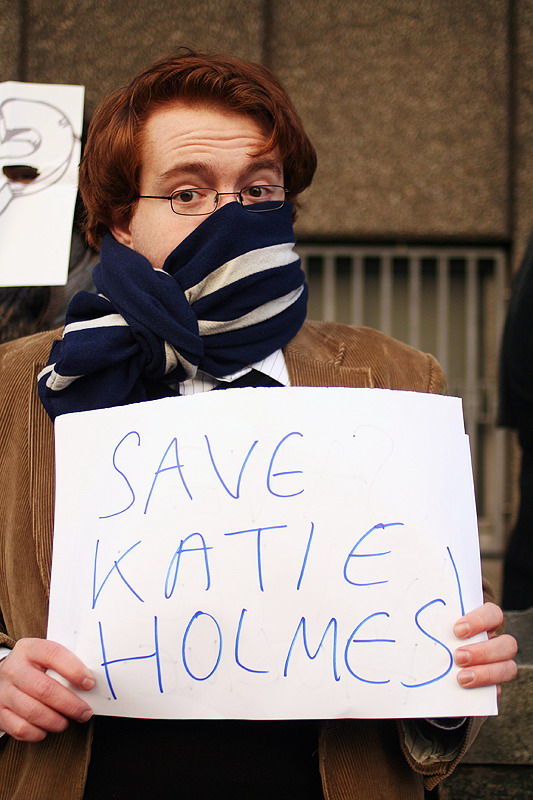 SAVE
KATIE
HOLMES!